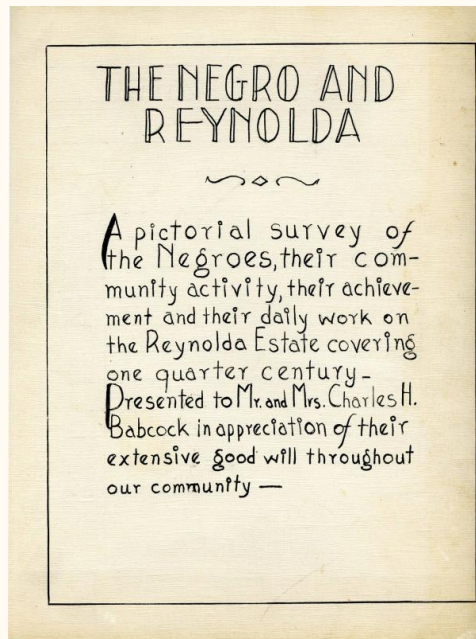 THE NEGRO AND
REYNOLDA
A pictorial survey of
the Negroes, their com-
munity activity, their achieve-
ment and their daily work on
the Reynolda Estate covering
one quarter century-
Presented to Mr. and Mrs. Charles H.
Babcock in appreciation of their
extensive good will throughout
our community —